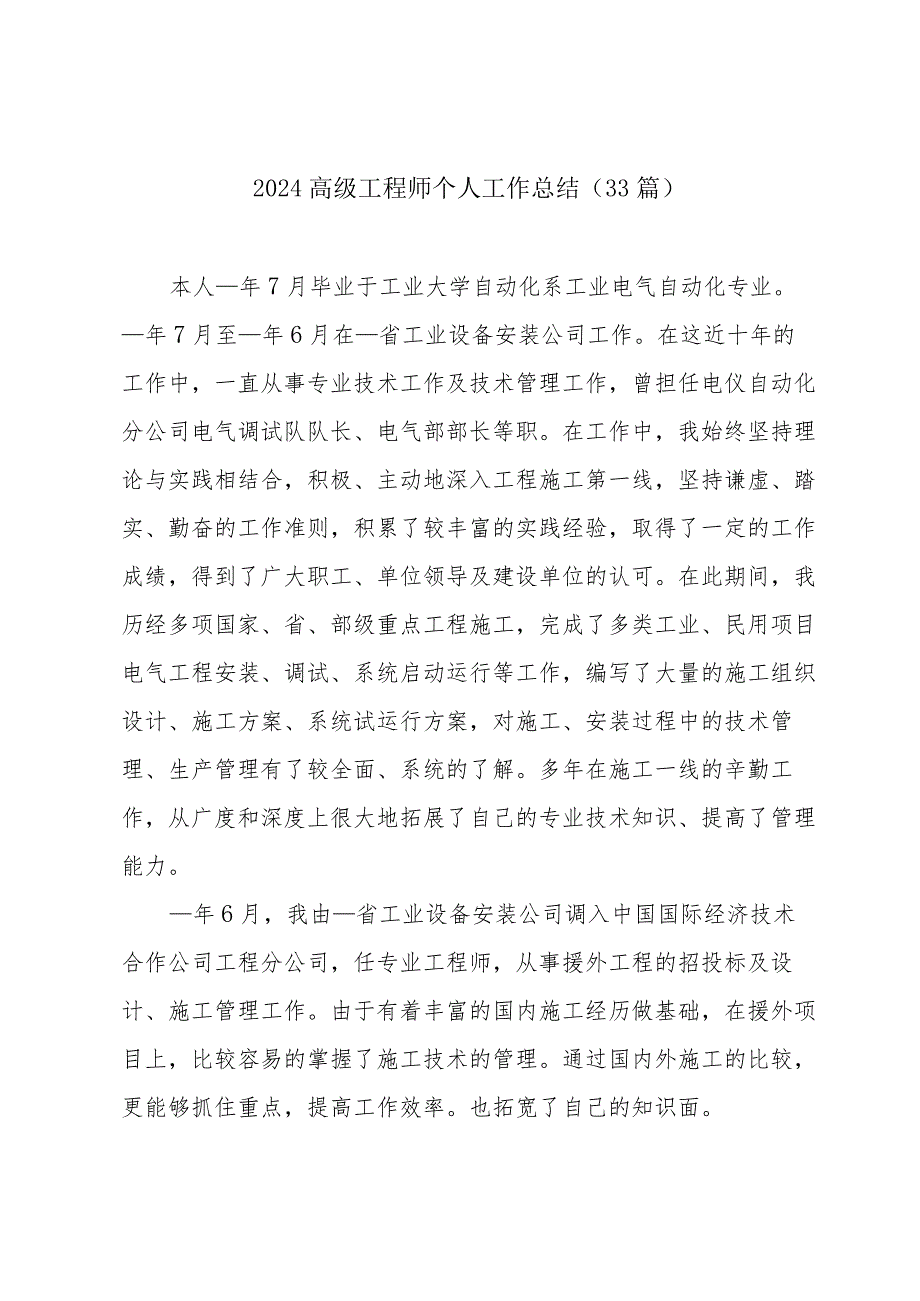 2024 高级工程师个人工作总结（33 篇）
本人—年 7 月毕业于工业大学自动化系工业电气自动化专业。
—年 7 月至—年 6 月在—省工业设备安装公司工作。在这近十年的
工作中，一直从事专业技术工作及技术管理工作，曾担任电仪自动化
分公司电气调试队队长、电气部部长等职。在工作中，我始终坚持理
论与实践相结合，积极、主动地深入工程施工第一线，坚持谦虚、踏
实、勤奋的工作准则，积累了较丰富的实践经验，取得了一定的工作
成绩，得到了广大职工、单位领导及建设单位的认可。在此期间，我
历经多项国家、省、部级重点工程施工，完成了多类工业、民用项目
电气工程安装、调试、系统启动运行等工作，编写了大量的施工组织
设计、施工方案、系统试运行方案，对施工、安装过程中的技术管
理、生产管理有了较全面、系统的了解。多年在施工一线的辛勤工
作，从广度和深度上很大地拓展了自己的专业技术知识、提高了管理
能力。
—年 6 月，我由—省工业设备安装公司调入中国国际经济技术
合作公司工程分公司，任专业工程师，从事援外工程的招投标及设
计、施工管理工作。由于有着丰富的国内施工经历做基础，在援外项
目上，比较容易的掌握了施工技术的管理。通过国内外施工的比较，
更能够抓住重点，提高工作效率。也拓宽了自己的知识面。